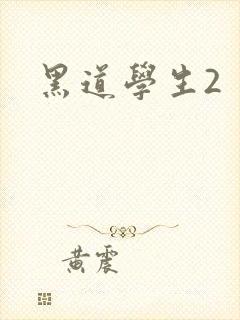 黑道學生2
黄震